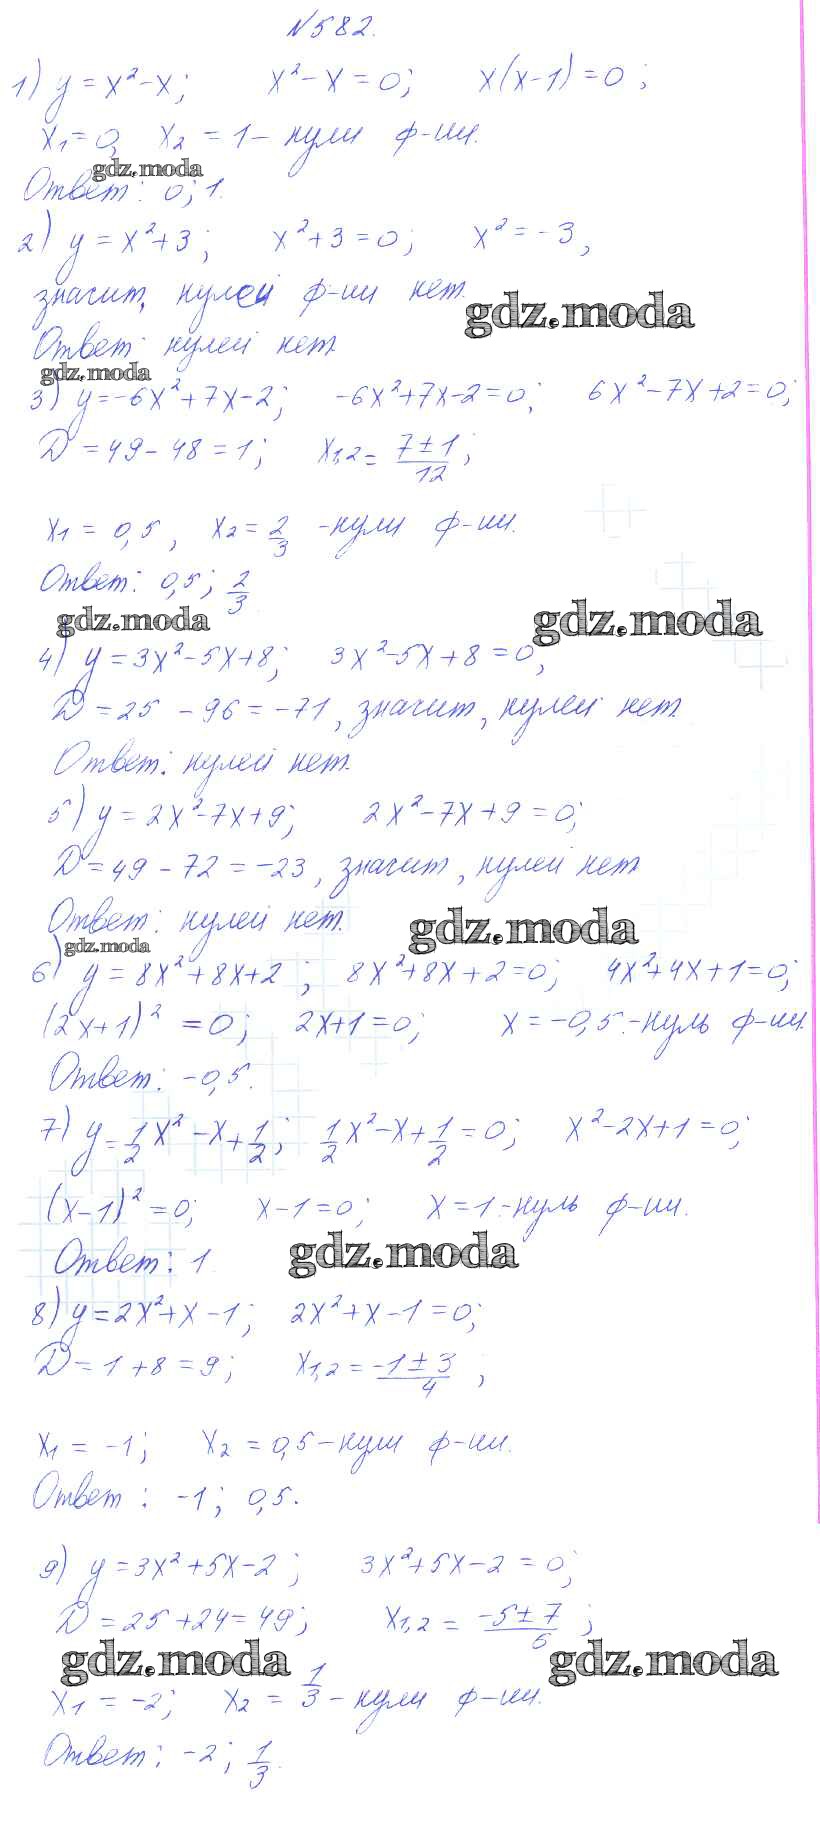 №582.
1) y = x² - x; x² - x = 0; x(x-1) = 0;
x₁ = 0, x₂ = 1 - нули ф-ии.
gdz.moda
Ответ: 0; 1.
2) y = x² + 3; x² + 3 = 0; x² = -3,
значит, нулей ф-ии нет.
gdz.moda
Ответ: нулей нет.
gdz.moda
3) y = -6x² + 7x - 2; -6x² + 7x - 2 = 0; 6x² - 7x + 2 = 0;
D = 49 - 48 = 1; x₁,₂ = (7 ± 1)/12;
x₁ = 0,5, x₂ = 2/3 - нули ф-ии.
Ответ: 0,5; 2/3
gdz.moda gdz.moda
4) y = 3x² - 5x + 8; 3x² - 5x + 8 = 0,
D = 25 - 96 = -71, значит, нулей нет.
Ответ: нулей нет.
5) y = 2x² - 7x + 9; 2x² - 7x + 9 = 0;
D = 49 - 72 = -23, значит, нулей нет
Ответ: нулей нет.
gdz.moda
gdz.moda
6) y = 8x² + 8x + 2; 8x² + 8x + 2 = 0; 4x² + 4x + 1 = 0;
(2x+1)² = 0; 2x + 1 = 0; x = -0,5. - нуль ф-ии.
Ответ: -0,5.
7) y = 1/2x² - x + 1/2; 1/2x² - x + 1/2 = 0; x² - 2x + 1 = 0;
(x-1)² = 0; x - 1 = 0; x = 1. - нуль ф-ии.
Ответ: 1
gdz.moda
8) y = 2x² + x - 1; 2x² + x - 1 = 0;
D = 1 + 8 = 9; x₁,₂ = (-1 ± 3)/4,
x₁ = -1; x₂ = 0,5 - нули ф-ии.
Ответ: -1; 0,5.
9) y = 3x² + 5x - 2; 3x² + 5x - 2 = 0;
D = 25 + 24 = 49; x₁,₂ = (-5 ± 7)/6;
gdz.moda gdz.moda
x₁ = -2; x₂ = 1/3 - нули ф-ии.
Ответ: -2; 1/3.